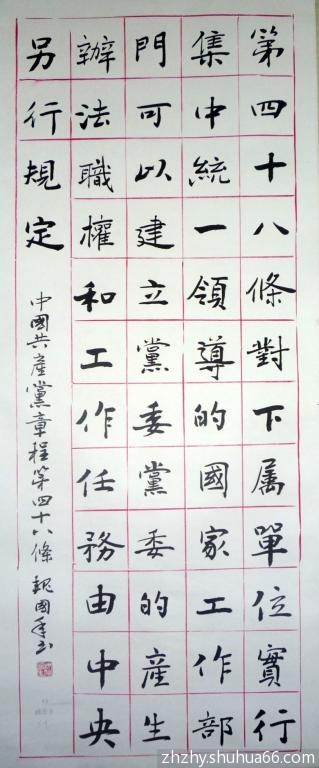 第四十八條對下属單位實行
集中統一領導的國家工作部
門可以建立黨委黨委的產生
辦法職權和工作任務由中央
另行規定
中國共産黨章程第四十八條 魏國書
zhzhy.shuhua66.com